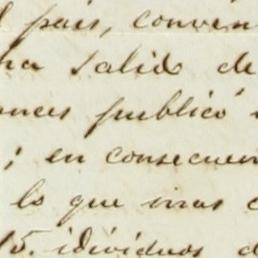 pais, conven
ha salido de
publicó
; en consecuen
lo que mas
15. idividuos d